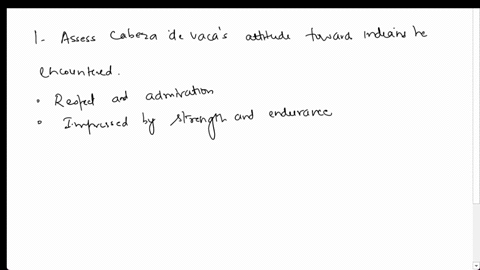 1- Assess Cabeza de vaca's attitude toward Indians he
encountered.
• Respect and admiration
• Impressed by strength and endurance